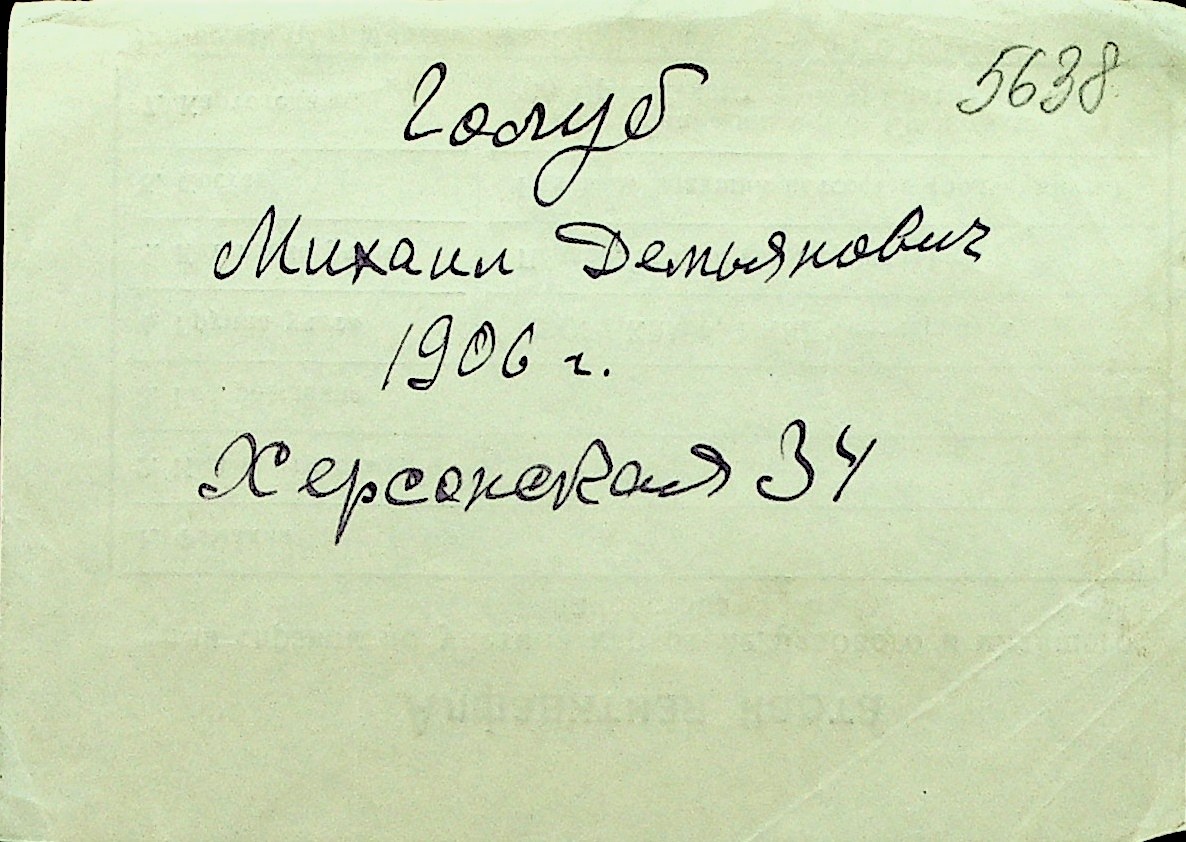 5638
Голуб
Михаил Демьянович
1906 г.
Херсонская 34